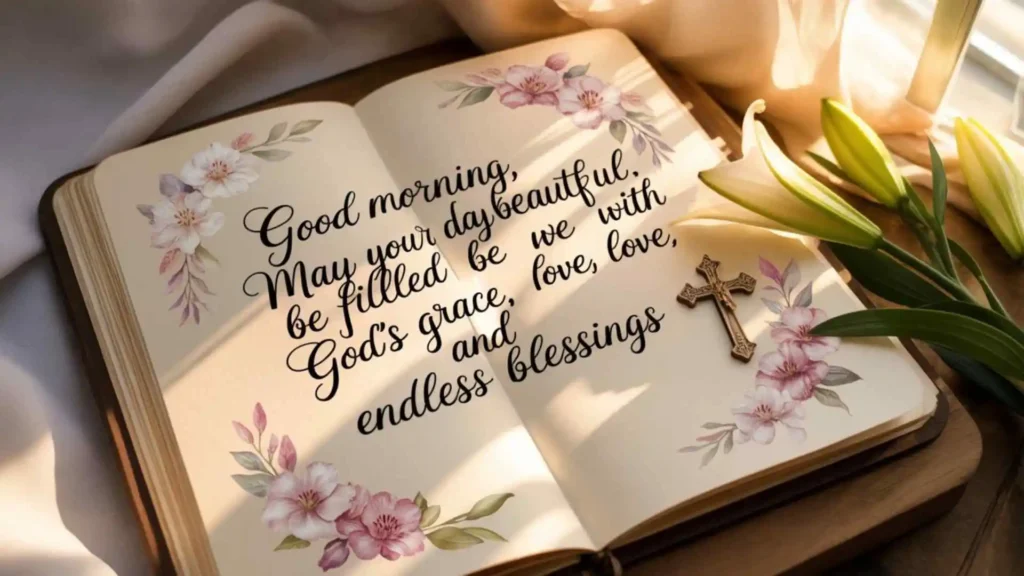 Good morning,
May your daybeautful.
be fillled be we with
God's grace, love, love,
and
endless blessings